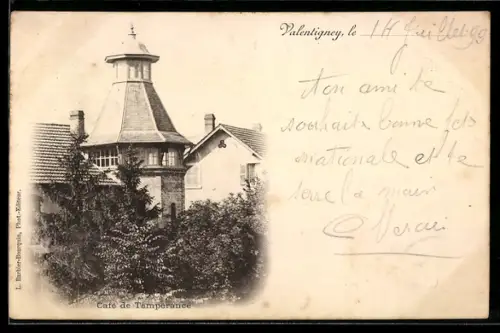 Valentigney, le 14 Juillet 99
Ton ami te
souhaite bonne fête
nationale et te
serre la main
L. Barbier-Bourquin, Phot.-Editeur.
Café de Tempérance